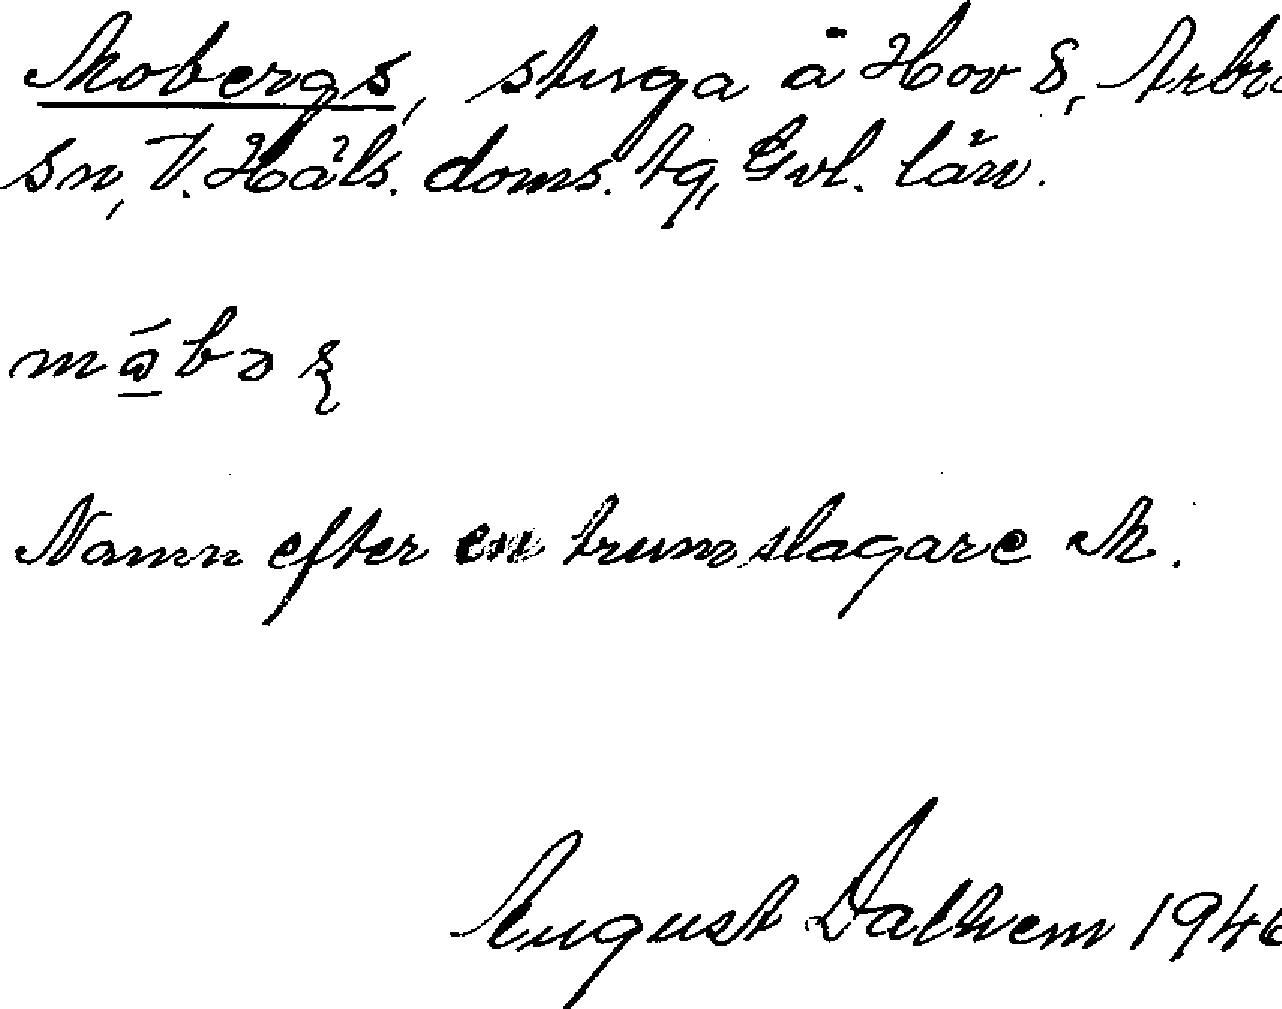 Mobergs, stuga å Hov 8, Arbrå
sn, V. Häls. doms. tg, Gvl. län.
mǻ̱bəʂ
Namn efter en trumslagare M.
August Dalhem 1946